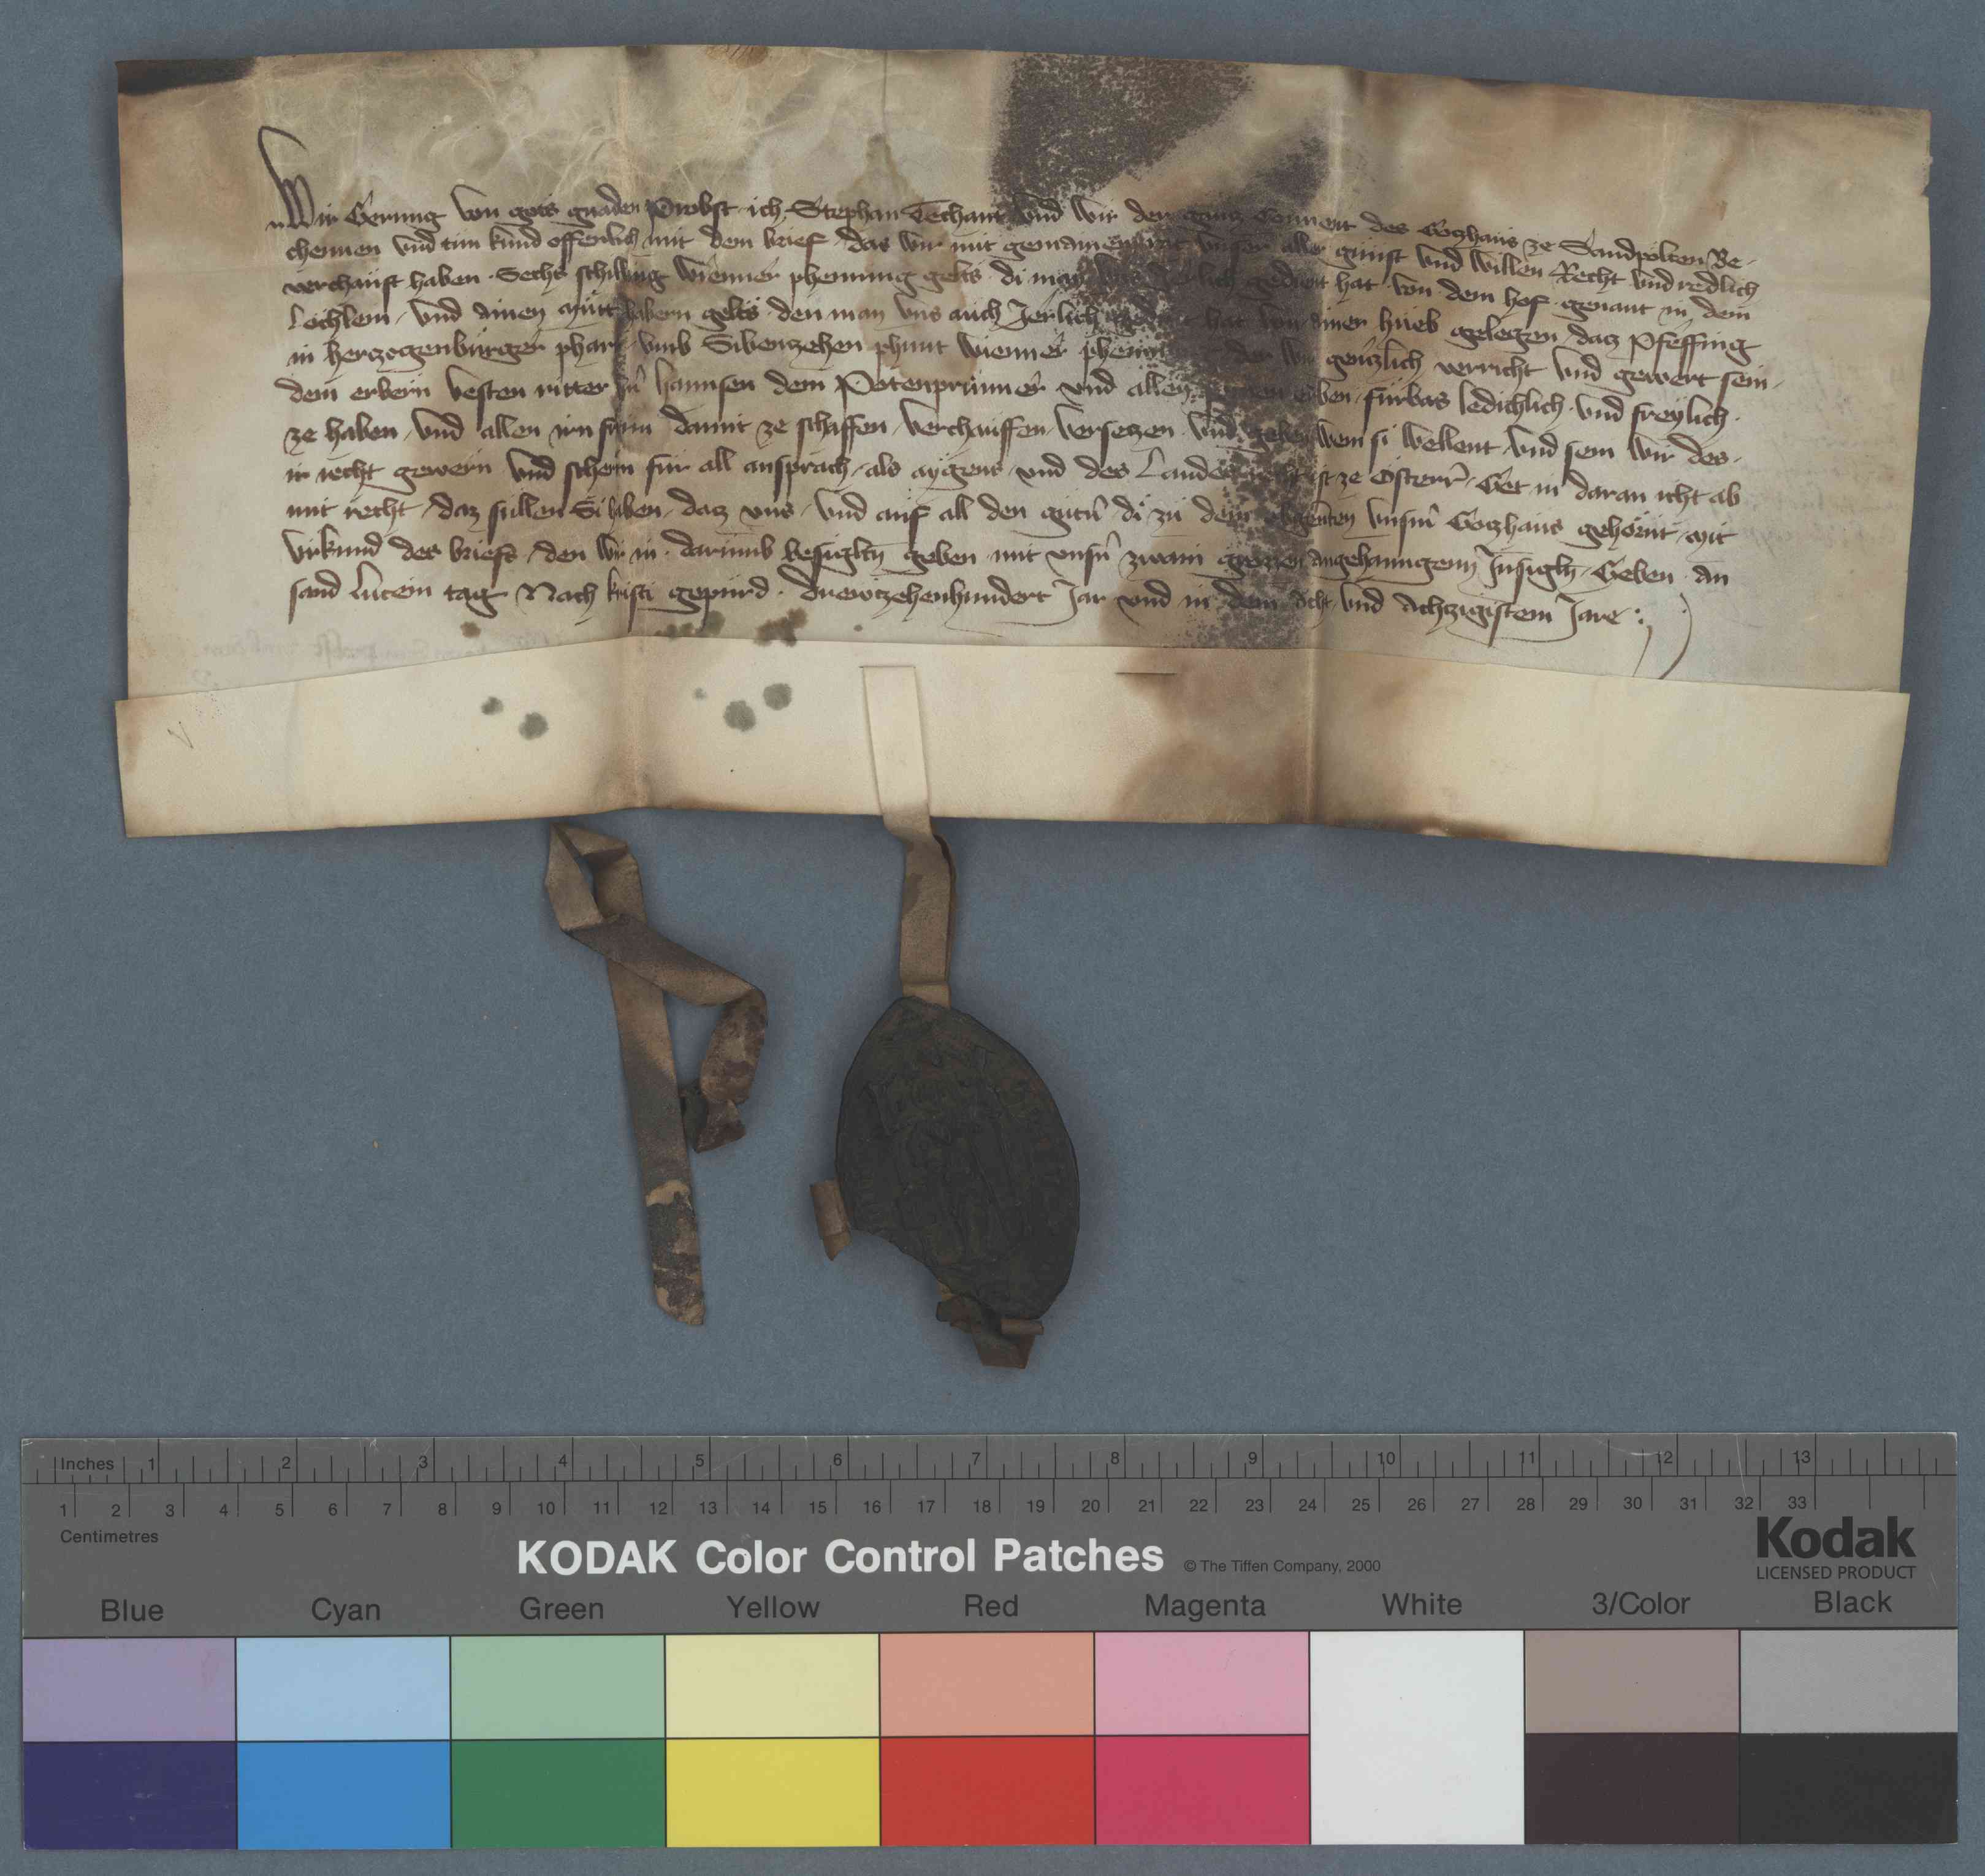 Wir Gerung von gots gnaden Probst ich Stephan Techant vnd wir der gantz Conuent des Gotzhaus ze Sandpölten Be-
chennen vnd tun kund offenlich mit dem brief das wir mit gemainem vnser aller gunst vnd willen Recht vnd redlich
verchauft haben Sechs schilling Wienner phenning gelts di man vns Jerlich gedint hat von dem hof genant in dem
Löchlein vnd ainen mutt habern gelts den man vns auch Jerlich gedint hat von ainer hueb gelegen datz Pfeffing
in hertzogenburger pharr vmb Sibenzehen phunt Wienner phenning der wir gentzlich verricht vnd gewert sein
dem erbern vesten ritter hern hannsen dem Potenprunner vnd allen seinen erben fürbas ledichlich vnd freylich
ze haben vnd allen irn frum damit ze schaffen verchauffen versetzen vnd geben wem si wellent vnd sein wir des
ir recht gewern vnd scherm für all ansprach als aygens vnd des Landes recht ist ze Österr Get in daran icht ab
mit recht daz sullen Si haben datz vns vnd auf all den gutern di zu dem vnserm Gotzhaus gehörnt mit
vrkund des briefs den wir in darumb besiglten geben mit vnsern zwain anhangenn Insigln Geben an
sand Lucein tag Nach kristi gepurd drewtzehenhundert Jar vnd in dem acht vnd Achzigistem Jare
Inches 1 2 3 4 5 6 7 8 9 10 11 12 13
1 2 3 4 5 6 7 8 9 10 11 12 13 14 15 16 17 18 19 20 21 22 23 24 25 26 27 28 29 30 31 32 33
Centimetres
KODAK Color Control Patches © The Tiffen Company, 2000
Kodak
LICENSED PRODUCT
Blue Cyan Green Yellow Red Magenta White 3/Color Black